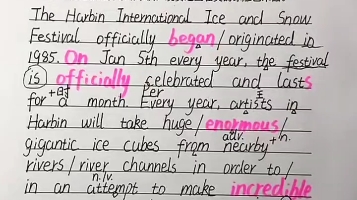 The Harbin International Ice and Snow
Festival officially began/originated in
1985. On Jan 5th every year, the festival
is officially celebrated and lasts
+时 Per 主
for a month. Every year, artists in
Harbin will take huge/enormous/
adv. +n.
gigantic ice cubes from nearby
rivers/river channels in order to/
n./v.
in an attempt to make incredible